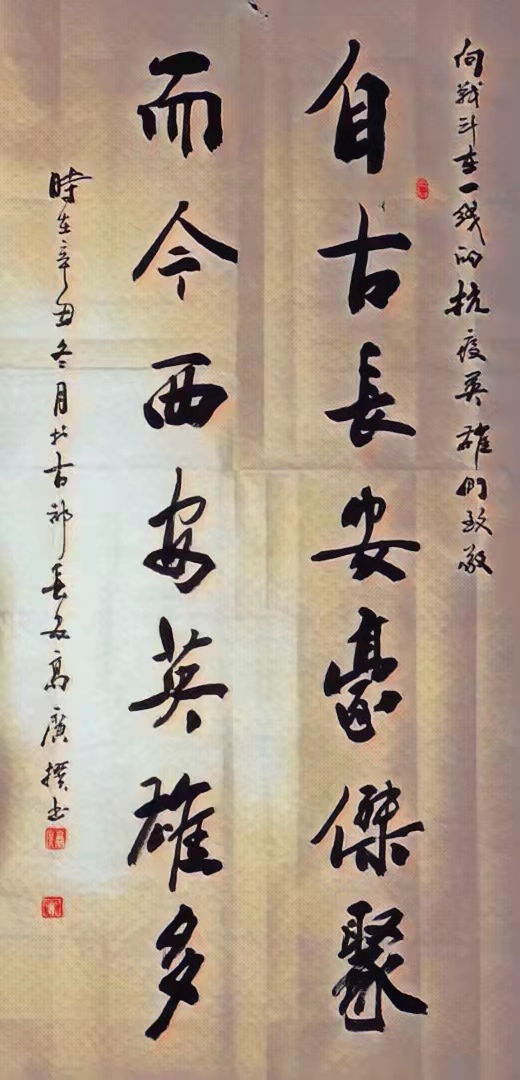 向战斗在一线的抗疫英雄们致敬
自古長安豪傑聚
而今西安英雄多
時在辛丑冬月书古都長安高廣撰书